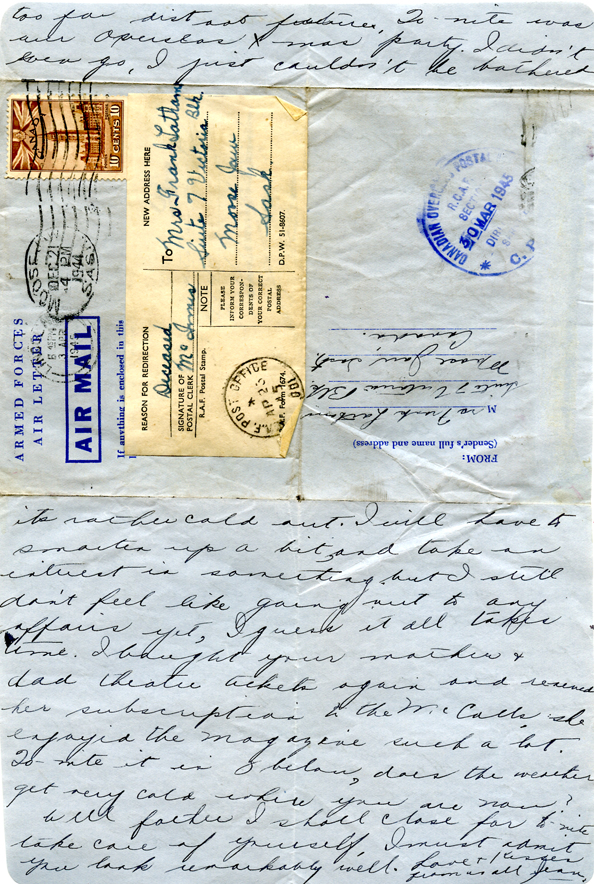 too far distant future, To-nite was
our Overseas Xmas party. I didn't
even go, I just couldn't be bothered
CANADA
10 CENTS 10
MOOSE JAW
DEC 21
4 PM
1944
SASK
3 APR
1945
ARMED FORCES
AIR LETTER
AIR MAIL
If anything is enclosed in this
NEW ADDRESS HERE
To Mrs Frank Latham
Suite 7 Victoria Blk.
Moose Jaw
Sask
D.P.W. 51-8607.
REASON FOR REDIRECTION
Deceased
SIGNATURE OF POSTAL CLERK McInnis
R.A.F. Postal Stamp.
NOTE
PLEASE
INFORM YOUR
CORRESPON-
DENTS OF
YOUR CORRECT
POSTAL
ADDRESS
R.A.F. POST OFFICE
AP 25
45
001
R.A.F. Form 1674.
CANADIAN OVERSEAS POSTAL
R.C.A.F.
SECT
30 MAR 1945
DIR
C. P
FROM:
(Sender's full name and address)
Mrs Frank Latham
Suite 7 Victoria Blk
Moose Jaw Sask.
Canada.
its rather cold out. I will have to
smarten up a bit, and take an
interest in something but I still
don't feel like going out to any
affairs yet, I guess it all takes
time. I bought your mother &
dad theatre tickets again and renewed
her subscription to the McCalls she
enjoyed the magazine such a lot.
To-nite it is 8 below, does the weather
get very cold where you are now?
Well father I shall close for to-nite
take care of yourself, I must admit
you look remarkably well. Love & kisses
from us all Jean,